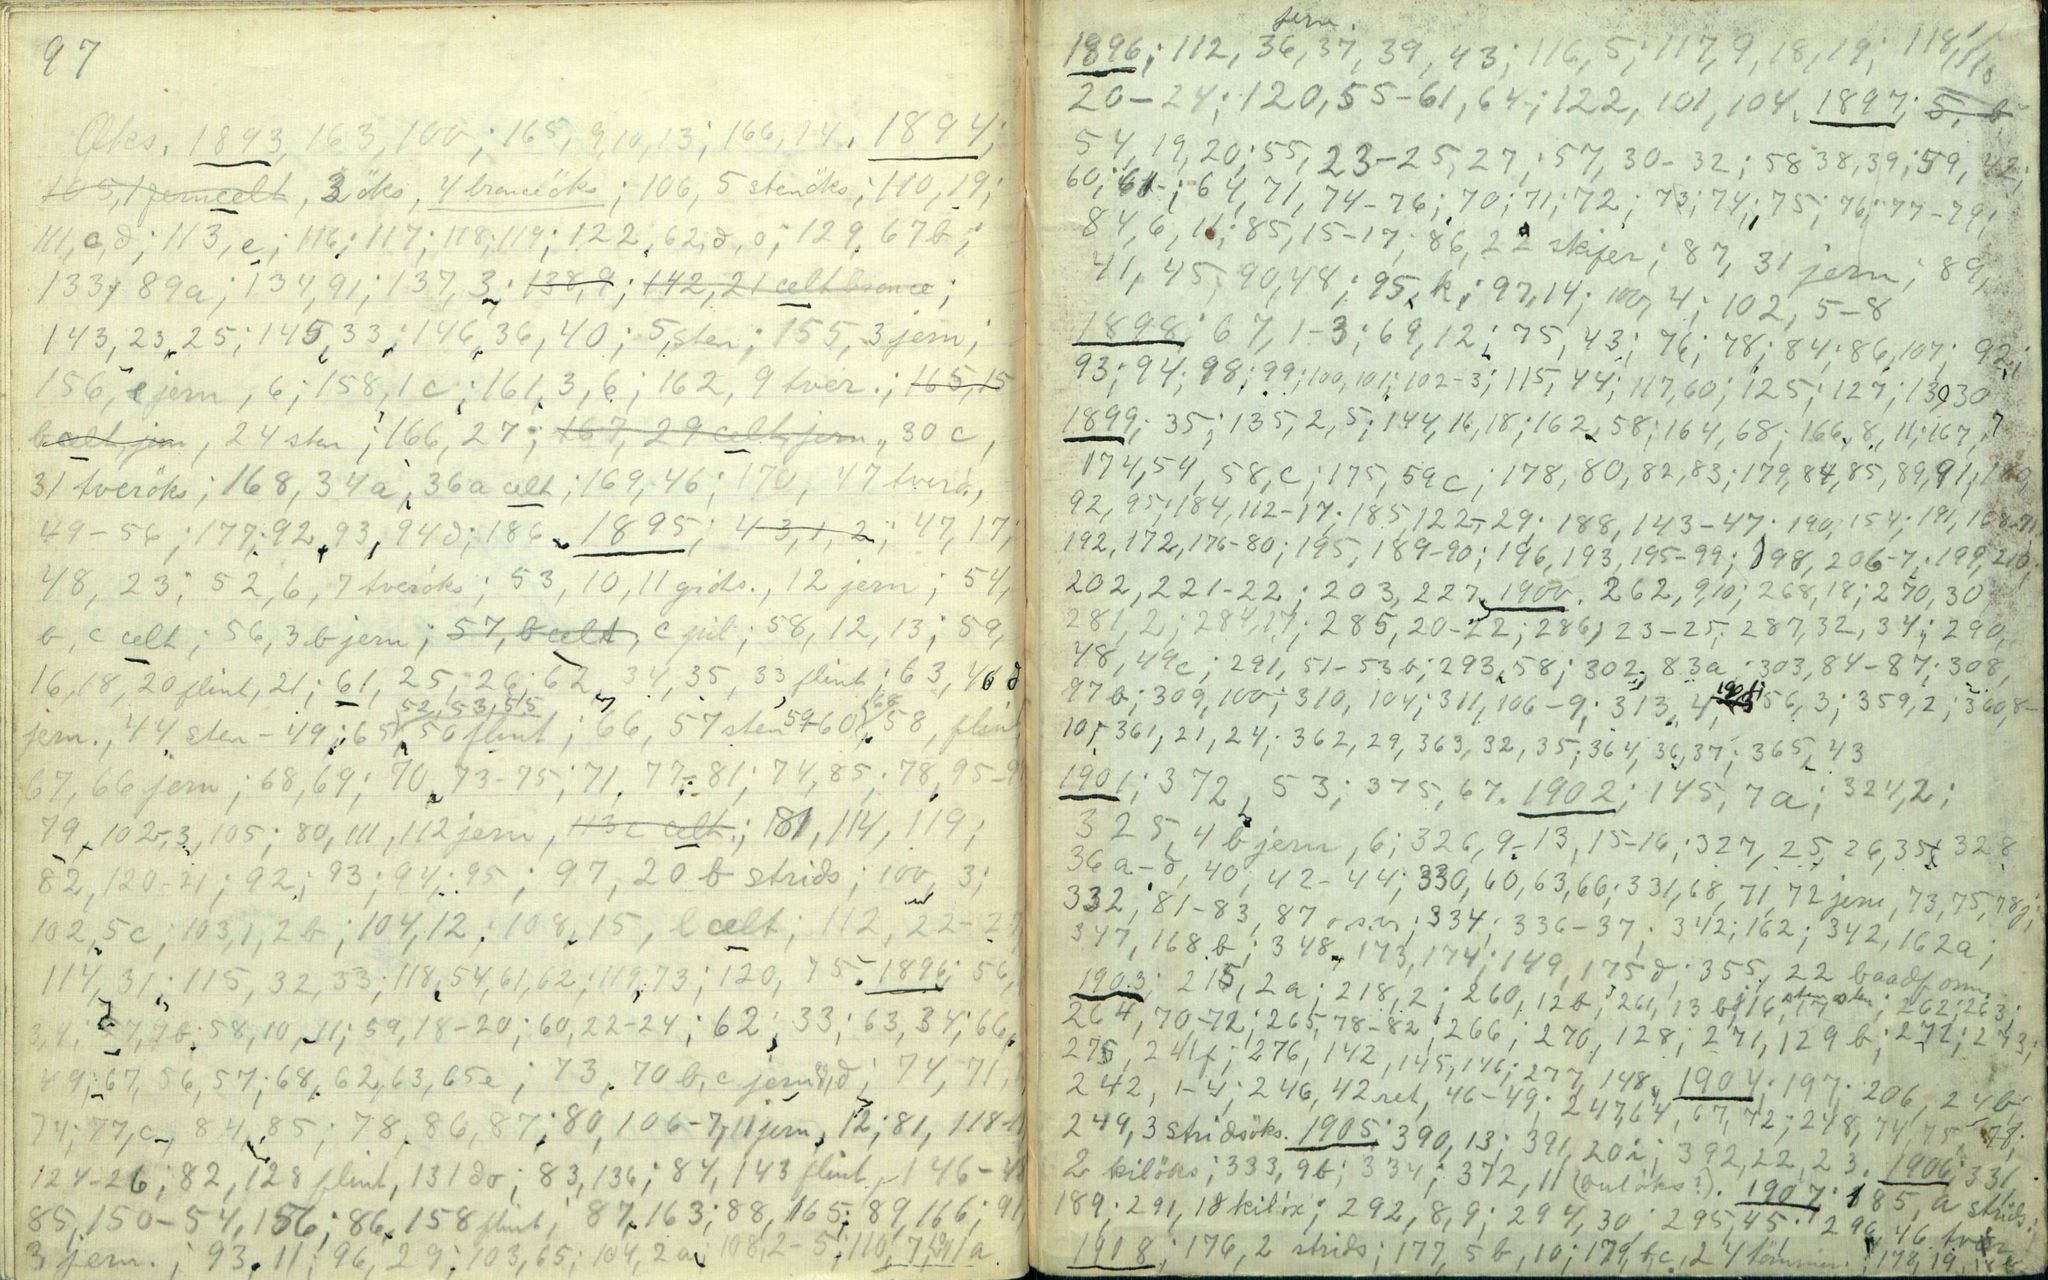 97
Øks. 1893, 163, 100; 165, 9, 10, 13; 166, 14. 1894;
105, 1 jerncelt, 3 öks, 4 bronceöks; 106, 5 stenöks; 110, 19;
111, c, d; 113, e; 116; 117; 118; 119; 122, 62, d, o; 129, 67b;
133, 89a; 134, 91; 137, 3; 138, 9; 142, 21 celt bronce;
143, 23, 25; 145, 33; 146, 36, 40; 5, sten; 155, 3 jern;
156, e jern, 6; 158, 1c; 161, 3, 6; 162, 9 tver.; 165, 15
b celt, jern, 24 sten; 166, 27; 167, 29 celt, jern, 30 c,
31 tveröks; 168, 34a, 36a celt; 169, 46; 170, 47 tverö.,
49-56; 177, 92, 93, 94d; 186. 1895; 43, 1, 2; 47, 17;
48, 23; 52, 6, 7 tveröks; 53, 10, 11 grds., 12 jern; 54,
b, c celt; 56, 3 b jern; 57, b celt, c pil; 58, 12, 13; 59,
16, 18, 20 flint, 21; 61, 25, 26; 62, 34, 35, 33 flint; 63, 40 d
52, 53, 55
jern., 44 sten-49; 65, 50 flint; 66, 57 sten 59-60, 58, flint
67, 66 jern; 68, 69; 70, 73-75; 71, 77-81; 74, 85; 78, 95-9
79, 102-3, 105; 80, 111, 112 jern, 113 c celt; 81, 114, 119;
82, 120-21; 92; 93; 94; 95; 97, 20 b strids; 100, 3;
102, 5c; 103, 1, 2b; 104, 12; 108, 15, l celt; 112, 22-27
114, 31; 115, 32, 33; 118, 54, 61, 62; 119, 73; 120, 75. 1896; 56,
3, 4, 7, 7b; 58, 10, 11; 59, 18-20; 60, 22-24; 62; 33; 63, 34; 66,
49; 67, 56, 57; 68, 62, 63, 65e; 73, 70 b, c jern, d; 74, 71,
74; 77, c, 84, 85; 78, 86, 87; 80, 106-7, 11 jern, 12; 81, 118-1
124-26; 82, 128 flint, 131 do; 83, 136; 84, 143 flint, 146-48
85, 150-54, 156; 86, 158 flint; 87, 163; 88, 165; 89, 166; 91
3 jern.; 93, 11; 96, 29; 103, 65; 104, 2a; 108, 2-5; 110, 7, 1a.
jern.
1896; 112, 36, 37, 39, 43; 116, 5; 117, 9, 18, 19; 118,
20-24; 120, 55-61, 64; 122, 101, 104. 1897; 5, b
54, 19, 20; 55, 23-25, 27; 57, 30-32; 58 38, 39; 59, 42;
60; 61; 64, 71, 74-76; 70; 71; 72; 73; 74; 75; 76; 77-79;
84, 6, 11; 85, 15-17; 86, 22 skifer; 87, 31 jern; 89,
41, 45, 90, 48; 95, k; 97, 14; 100, 4; 102, 5-8
1898; 67, 1-3; 69, 12; 75, 43; 76; 78; 84; 86, 107; 92;
93; 94; 98; 99; 100, 101; 102-3; 115, 44; 117, 60; 125; 127; 130, 30
1899; 35; 135, 2, 5; 144, 16, 18; 162, 58; 164, 68; 166, 8, 11; 167, 7
174, 54, 58, c; 175, 59c; 178, 80, 82, 83; 179, 84, 85, 89, 91, 180,
92, 95; 184, 112-17; 185, 122-29; 188, 143-47; 190, 154; 191, 168-71
192, 172, 176-80; 195, 189-90; 196, 193, 195-99; 198, 206-7; 199, 210;
202, 221-22; 203, 227. 1900. 262, 9, 10; 268, 18; 270, 30
281, 2; 284, 17; 285, 20-22; 286, 23-25; 287, 32, 34; 290,
48, 49c; 291, 51-53b; 293, 58; 302, 83a; 303, 84-87; 308,
97b; 309, 100; 310, 104; 311, 106-9; 313, 4, 56, 3; 359, 2; 360, 8-
10; 361, 21, 24; 362, 29, 363, 32, 35; 364, 36, 37; 365, 43
1901; 372, 53; 375, 67. 1902; 145, 7a; 324, 2;
325, 4 b jern, 6; 326, 9-13, 15-16; 327, 25, 26, 35; 328
36 a-d, 40, 42-44; 330, 60, 63, 66; 331, 68, 71, 72 jern, 73, 75, 78;
332, 81-83, 87 osv; 334; 336-37; 342; 162; 342, 162a;
347, 168b; 348, 173, 174; 149, 175d; 355, 22 baadform.
1903; 215, 2a; 218, 2; 260, 12b; 261, 13 b; 16, sten 17 sten; 262; 263;
264, 70-72; 265, 78-82; 266; 270, 128; 271, 129 b; 272; 273;
275, 241f; 276, 142, 145, 146; 277, 148, 1904; 197; 206, 24b;
242, 1-4; 246, 42 ret, 46-49; 247, 64, 67, 72; 248, 74, 75, 78;
249, 3 stridsöks. 1905; 390, 13; 391, 20i; 392, 22, 23. 1906; 331
2 kilöks; 333, 9b; 334; 372, 11 (hulöks?). 1907; 185, a strids;
189; 291, 18 kilöx; 292, 8, 9; 294, 30; 295, 45; 296, 46 tver
1908; 176, 2 strids; 177, 5b, 10; 179, b, c, 24 tömmer; 178, 19,